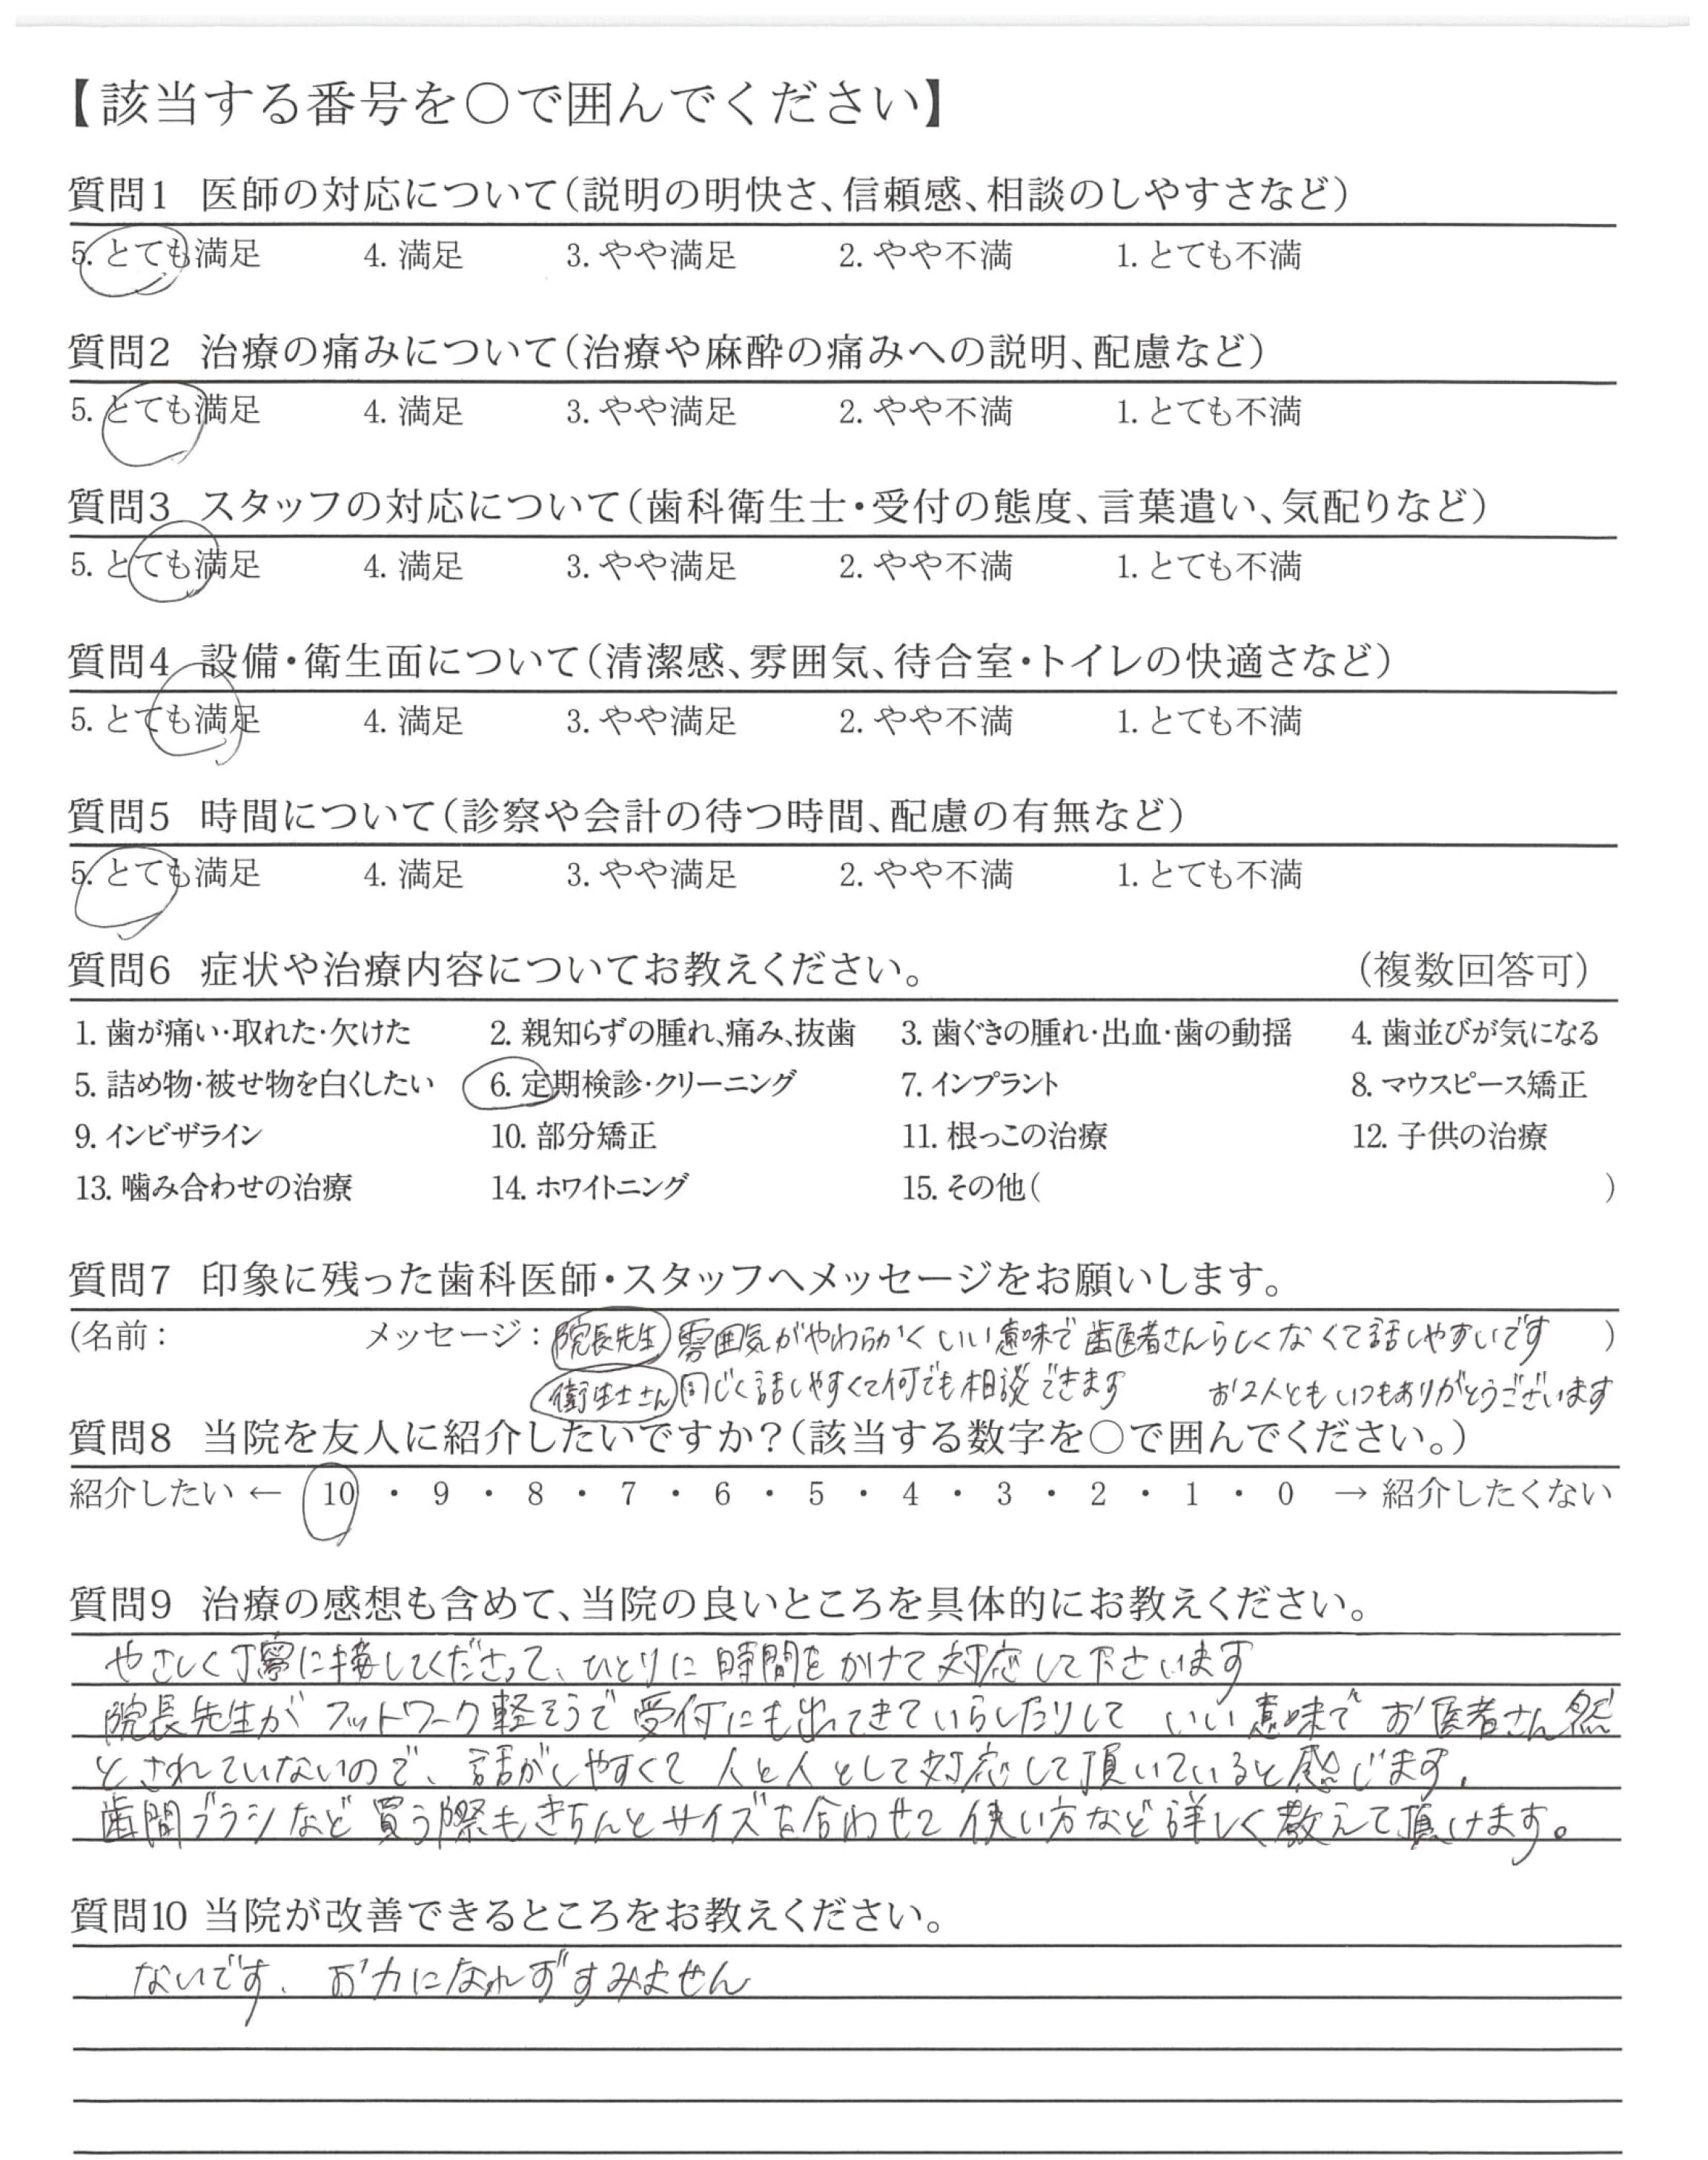 【該当する番号を○で囲んでください】
質問1 医師の対応について(説明の明快さ、信頼感、相談のしやすさなど)
5. とても満足 4. 満足 3. やや満足 2. やや不満 1. とても不満
質問2 治療の痛みについて(治療や麻酔の痛みへの説明、配慮など)
5. とても満足 4. 満足 3. やや満足 2. やや不満 1. とても不満
質問3 スタッフの対応について(歯科衛生士・受付の態度、言葉遣い、気配りなど)
5. とても満足 4. 満足 3. やや満足 2. やや不満 1. とても不満
質問4 設備・衛生面について(清潔感、雰囲気、待合室・トイレの快適さなど)
5. とても満足 4. 満足 3. やや満足 2. やや不満 1. とても不満
質問5 時間について(診察や会計の待つ時間、配慮の有無など)
5. とても満足 4. 満足 3. やや満足 2. やや不満 1. とても不満
質問6 症状や治療内容についてお教えください。 (複数回答可)
1. 歯が痛い・取れた・欠けた 2. 親知らずの腫れ、痛み、抜歯 3. 歯ぐきの腫れ・出血・歯の動揺 4. 歯並びが気になる
5. 詰め物・被せ物を白くしたい 6. 定期検診・クリーニング 7. インプラント 8. マウスピース矯正
9. インビザライン 10. 部分矯正 11. 根っこの治療 12. 子供の治療
13. 噛み合わせの治療 14. ホワイトニング 15. その他( )
質問7 印象に残った歯科医師・スタッフへメッセージをお願いします。
(名前: メッセージ: 院長先生 雰囲気がやわらかく いい意味で 歯医者さんらしくなくて話しやすいです )
衛生士さん 同じく話しやすくて何でも相談できます お2人とも いつもありがとうございます
質問8 当院を友人に紹介したいですか?(該当する数字を○で囲んでください。)
紹介したい ← 10 ・ 9 ・ 8 ・ 7 ・ 6 ・ 5 ・ 4 ・ 3 ・ 2 ・ 1 ・ 0 → 紹介したくない
質問9 治療の感想も含めて、当院の良いところを具体的にお教えください。
やさしく丁寧に接してくださって、ひとりに 時間を かけて 対応して下さいます
院長先生が フットワーク軽そうで 受付にも出てきていらしたりして いい意味で お医者さん然
とされていないので、話がしやすくて 人と人 として対応して頂いていると感じます。
歯間ブラシなど買う際もきちんとサイズを合わせて 使い方など詳しく教えて頂けます。
質問10 当院が改善できるところをお教えください。
ないです。お力になれずすみません